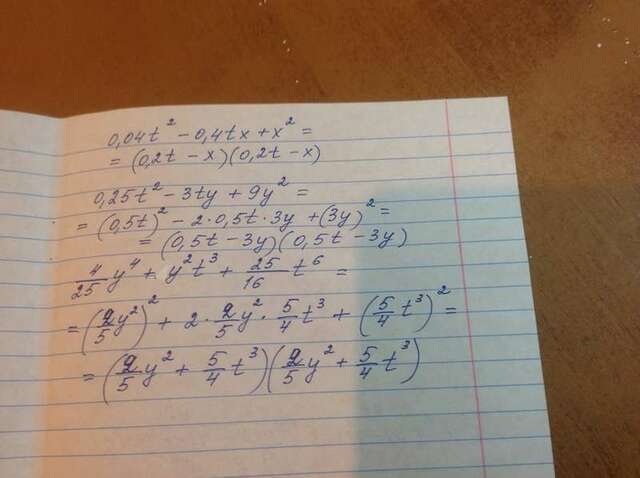 0,04t² - 0,4tx + x² =
= (0,2t - x)(0,2t - x)
0,25t² - 3ty + 9y² =
= (0,5t)² - 2·0,5t·3y + (3y)² =
= (0,5t - 3y)(0,5t - 3y)
4/25 y⁴ + y²t³ + 25/16 t⁶ =
= (2/5 y²)² + 2·2/5 y²·5/4 t³ + (5/4 t³)² =
= (2/5 y² + 5/4 t³)(2/5 y² + 5/4 t³)